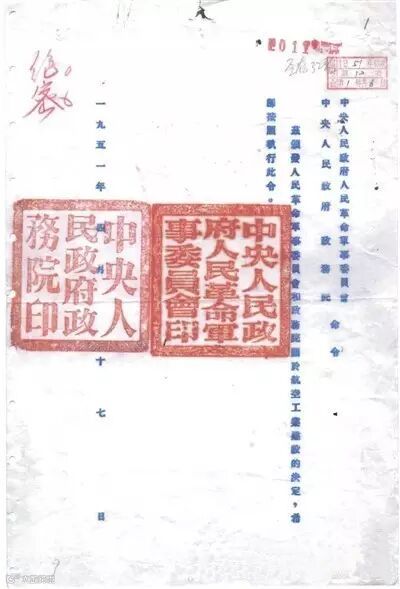 中央人民政府人民革命軍事委員會
中央人民政府政務院 命令
茲頒發人民革命軍事委員會和政務院關於航空工業建設的決定,希
即按照執行此令。
中央人民政
府人民革命軍
事委員會印
中央人
民政府政
務院印
一九五一年四月十七日
絕密